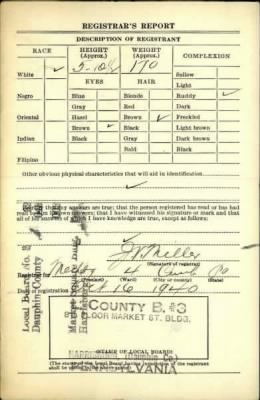 REGISTRAR'S REPORT
DESCRIPTION OF REGISTRANT
RACE
HEIGHT (Approx.)
WEIGHT (Approx.)
COMPLEXION
White ✓
5-10½
170
Sallow
EYES
HAIR
Light
Negro
Blue
Blonde
Ruddy ✓
Gray
Red
Dark
Oriental
Hazel
Brown ✓
Freckled
Brown ✓
Black
Light brown
Indian
Black
Gray
Dark brown
Bald
Black
Filipino
Other obvious physical characteristics that will aid in identification
answers are true; that the person registered has read or has had
read to him his own answers; that I have witnessed his signature or mark and that
all of his answers of which I have knowledge are true, except as follows:
Local Board No.
Dauphin County
Market Bldg.
Miller
(Signature of registrar)
Registrar for
4
Pa
(Ward)
(City or county)
(State)
Date of registration
16 1940
COUNTY B. #3
FLOOR MARKET ST. BLDG.
(STAMP OF LOCAL BOARD)
(The stamp of the Local Board having
shall be placed in the above space.)